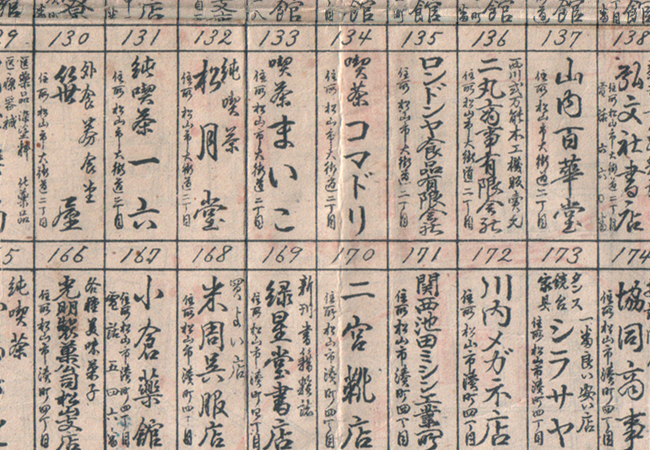 130
外食券食堂
住所 松山市大街道二丁目
131
純喫茶 一六
住所 松山市大街道二丁目
132
純喫茶
松月堂
住所 松山市大街道二丁目
133
喫茶 まいこ
住所 松山市大街道二丁目
134
喫茶 コマドリ
住所 松山市大街道二丁目
135
ロンドンヤ食品有限会社
住所 松山市大街道二丁目
136
西川式万能木工機販売元
二丸商事有限会社
住所 松山市大街道二丁目
137
山内百華堂
住所 松山市大街道二丁目
138
弘文社書店
166
光明製菓公司松山支店
住所 松山市湊町四丁目
167
各種美味菓子
小倉薬館
住所 松山市湊町四丁目
電話 五四六番
168
買よい店
米周呉服店
住所 松山市湊町四丁目
169
新刊書籍雑誌
緑星堂書店
住所 松山市湊町四丁目
170
二宮靴店
住所 松山市湊町四丁目
171
関西池田ミシン工業所
住所 松山市湊町四丁目
172
川内メガネ店
住所 松山市湊町四丁目
173
タンス
鏡台
家具
一番良い安い店
シラサヤ
住所 松山市湊町四丁目
174
協同商事
住所 松山市湊町四丁目
純喫茶